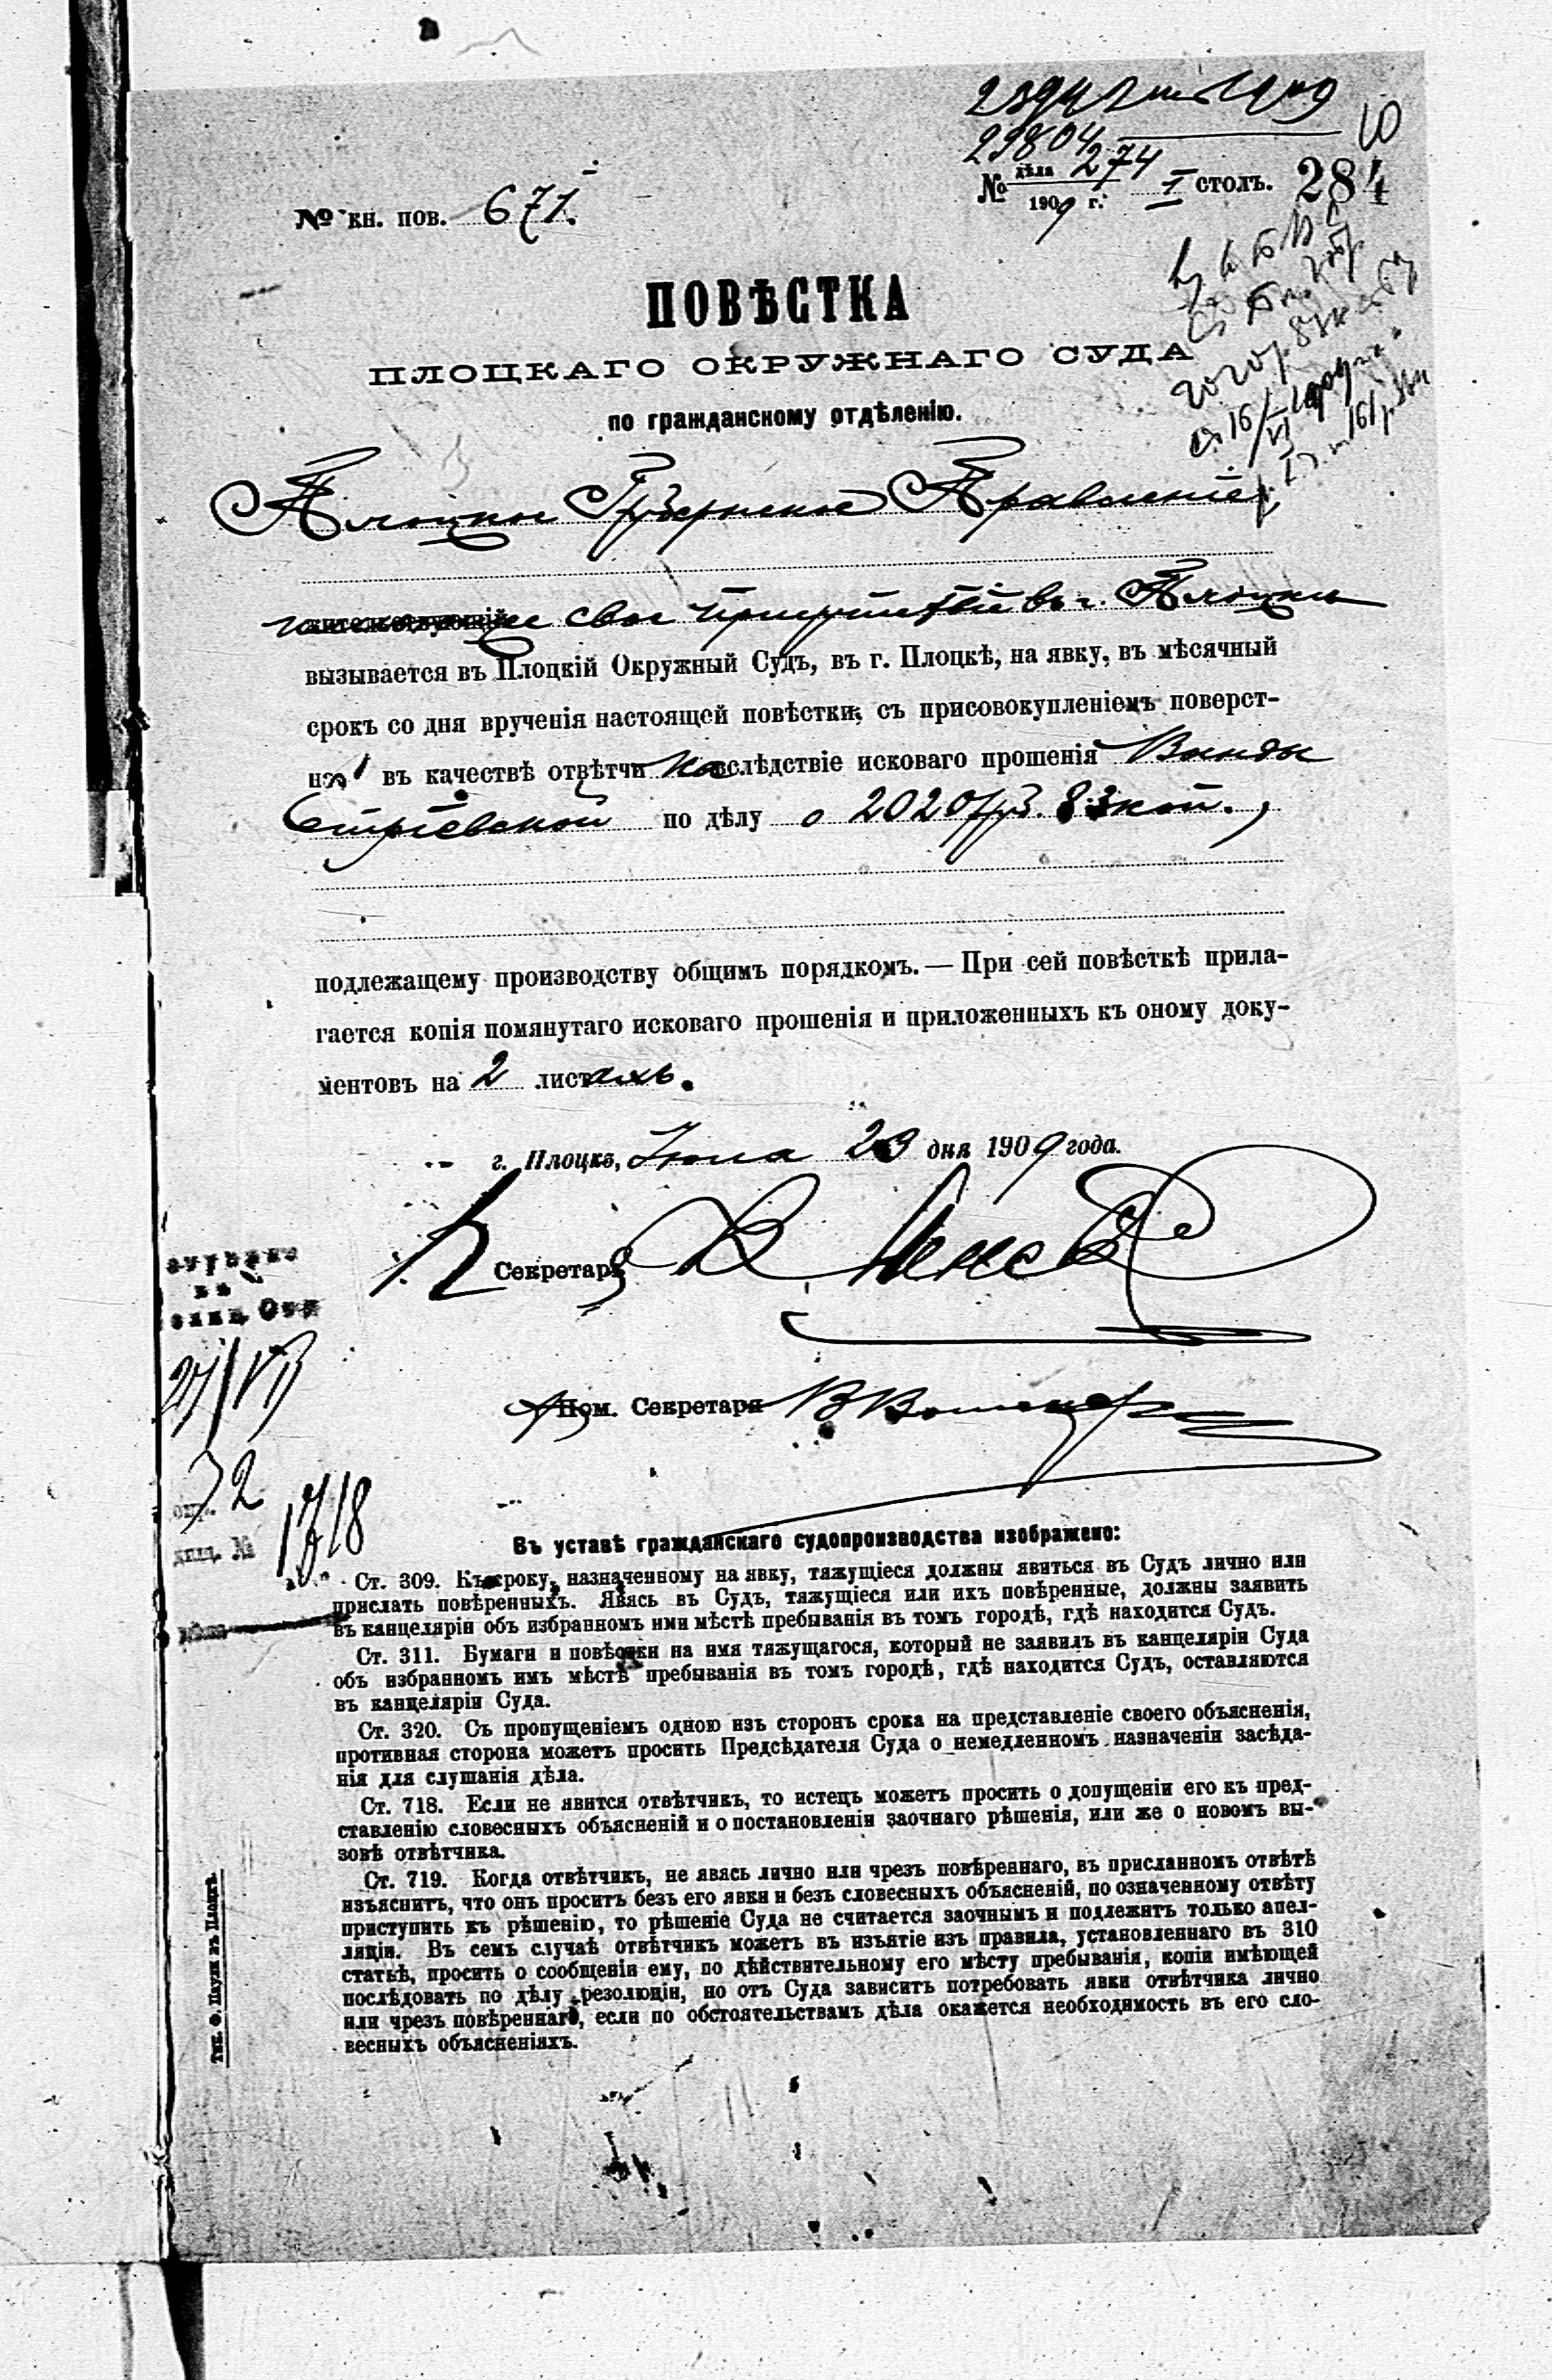 10
№ дѣла 274 1909 г. I столъ. 284
№ кн. пов. 671.
ПОВѢСТКА
ПЛОЦКАГО ОКРУЖНАГО СУДА
по гражданскому отдѣленію.
Плоцкое Губернское Правленіе
свое присутствіе въ г. Плоцкѣ
вызывается въ Плоцкій Окружный Судъ, въ г. Плоцкѣ, на явку, въ мѣсячный
срокъ со дня врученія настоящей повѣстки, съ присовокупленіемъ поверст-
въ качествѣ отвѣтчика вслѣдствіе исковаго прошенія Ванды
по дѣлу о 2020 руб. 83 коп.,
подлежащему производству общимъ порядкомъ. — При сей повѣсткѣ прила-
гается копія помянутаго исковаго прошенія и приложенныхъ къ оному доку-
ментовъ на 2 листахъ.
г. Плоцкъ, Іюля 23 дня 1909 года.
Секретарь
27/VII
Пом. Секретаря
32
1718
Въ уставѣ гражданскаго судопроизводства изображено:
Ст. 309. Къ сроку, назначенному на явку, тяжущіеся должны явиться въ Судъ лично или
прислать повѣренныхъ. Явясь въ Судъ, тяжущіеся или ихъ повѣренные, должны заявить
въ канцеляріи объ избранномъ ими мѣстѣ пребыванія въ томъ городѣ, гдѣ находится Судъ.
Ст. 311. Бумаги и повѣстки на имя тяжущагося, который не заявилъ въ канцеляріи Суда
объ избранномъ имъ мѣстѣ пребыванія въ томъ городѣ, гдѣ находится Судъ, оставляются
въ канцеляріи Суда.
Ст. 320. Съ пропущеніемъ одною изъ сторонъ срока на представленіе своего объясненія,
противная сторона можетъ просить Предсѣдателя Суда о немедленномъ назначеніи засѣда-
нія для слушанія дѣла.
Ст. 718. Если не явится отвѣтчикъ, то истецъ можетъ просить о допущеніи его къ пред-
ставленію словесныхъ объясненій и о постановленіи заочнаго рѣшенія, или же о новомъ вы-
зовѣ отвѣтчика.
Ст. 719. Когда отвѣтчикъ, не явясь лично или чрезъ повѣреннаго, въ присланномъ отвѣтѣ
изъяснитъ, что онъ проситъ безъ его явки и безъ словесныхъ объясненій, по означенному отвѣту
приступить къ рѣшенію, то рѣшеніе Суда не считается заочнымъ и подлежитъ только апел-
ляціи. Въ семъ случаѣ отвѣтчикъ можетъ въ изъятіе изъ правила, установленнаго въ 310
статьѣ, просить о сообщеніи ему, по дѣйствительному его мѣсту пребыванія, копіи имѣющей
послѣдовать по дѣлу резолюціи, но отъ Суда зависитъ потребовать явки отвѣтчика лично
или чрезъ повѣреннаго, если по обстоятельствамъ дѣла окажется необходимость въ его сло-
весныхъ объясненіяхъ.
Тип. Ф. Паули въ Плоцкѣ.